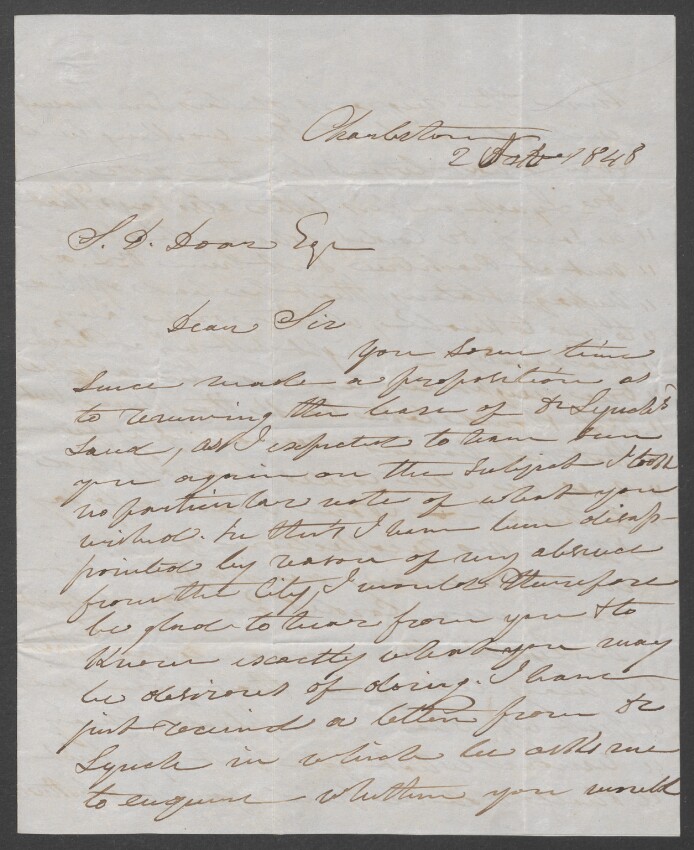 Charleston
2 Octbr 1848
S. D. Doar Esqr
Dear Sir
You some time
since made a proposition as
to renewing the lease of Dr Lynch's
Land, as I expected to have seen
you again on the subject I took
no particular note of what you
wished. In that I have been disap-
pointed by reason of my absence
from the City, I would therefore
be glad to hear from you & to
Know exactly what you may
be desirous of doing. I have
just received a letter from Dr
Lynch in which he asks me
to enquire whether you would